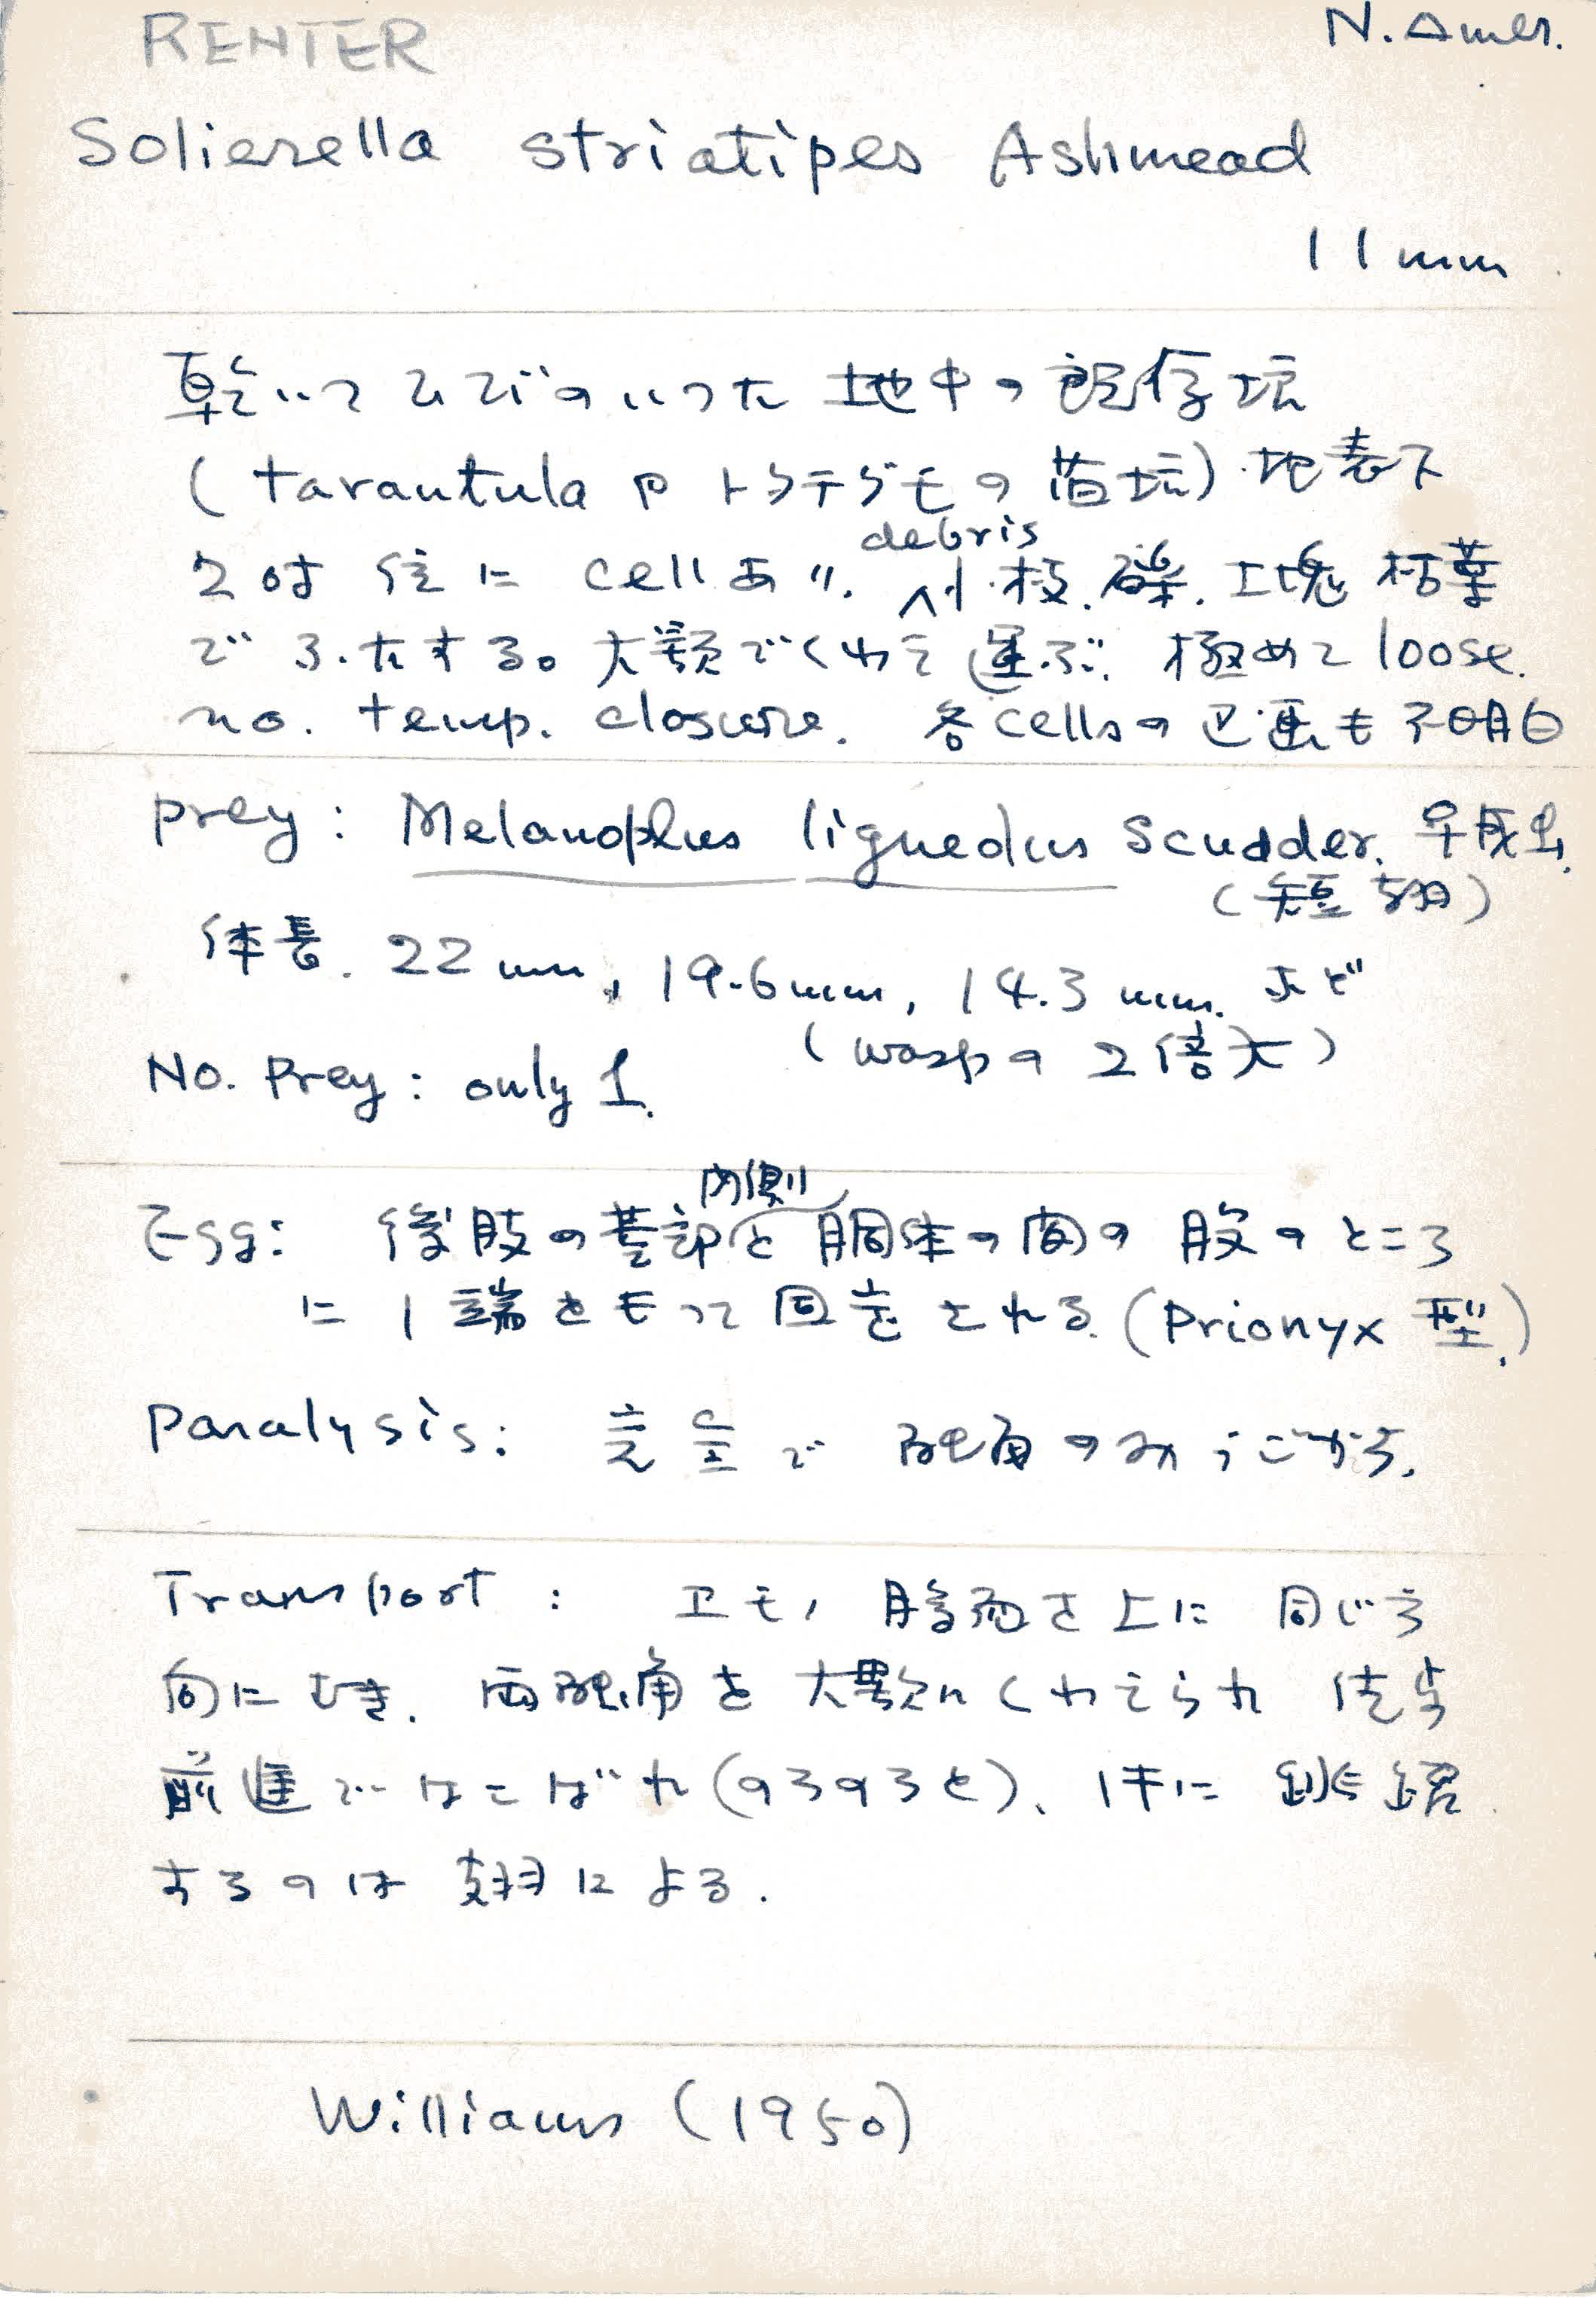 RENTER
N. Amer.
Solierella striatipes Ashmead
11 mm
乾いてひびのいった 地中の既存坑
(tarantula や トタテグモの 旧坑) 地表下
2吋 位に cellあり. 小枝. 礫. 土塊 枯葉
debris
で ふたする。大顎でくわえ運ぶ. 極めて loose.
no. temp. closure. 各cellsの区画も不明白
prey : Melanoplus ligneolus Scudder. 早成虫.
(短翅)
体長. 22 mm, 19.6mm, 14.3 mm. など
(waspの 2倍大)
No. Prey : only 1.
Egg: 後肢の基部と胴体の間の 股のところ
内側
に 1端をもって固定される. (Prionyx 型.)
Paralysis: 完全で 触角のみうごかす.
Transport : エモノ 腹面を上に 同じ方
向にむき. 両触角を 大顎にくわえられ 徒歩
前進ではこばれ (のろのろと)、1キに 跳躍
するのは 翅による.
Williams (1950)